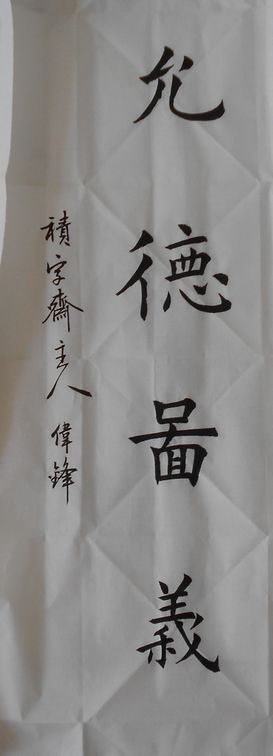 允德啚義
積字齋主人 偉鋒